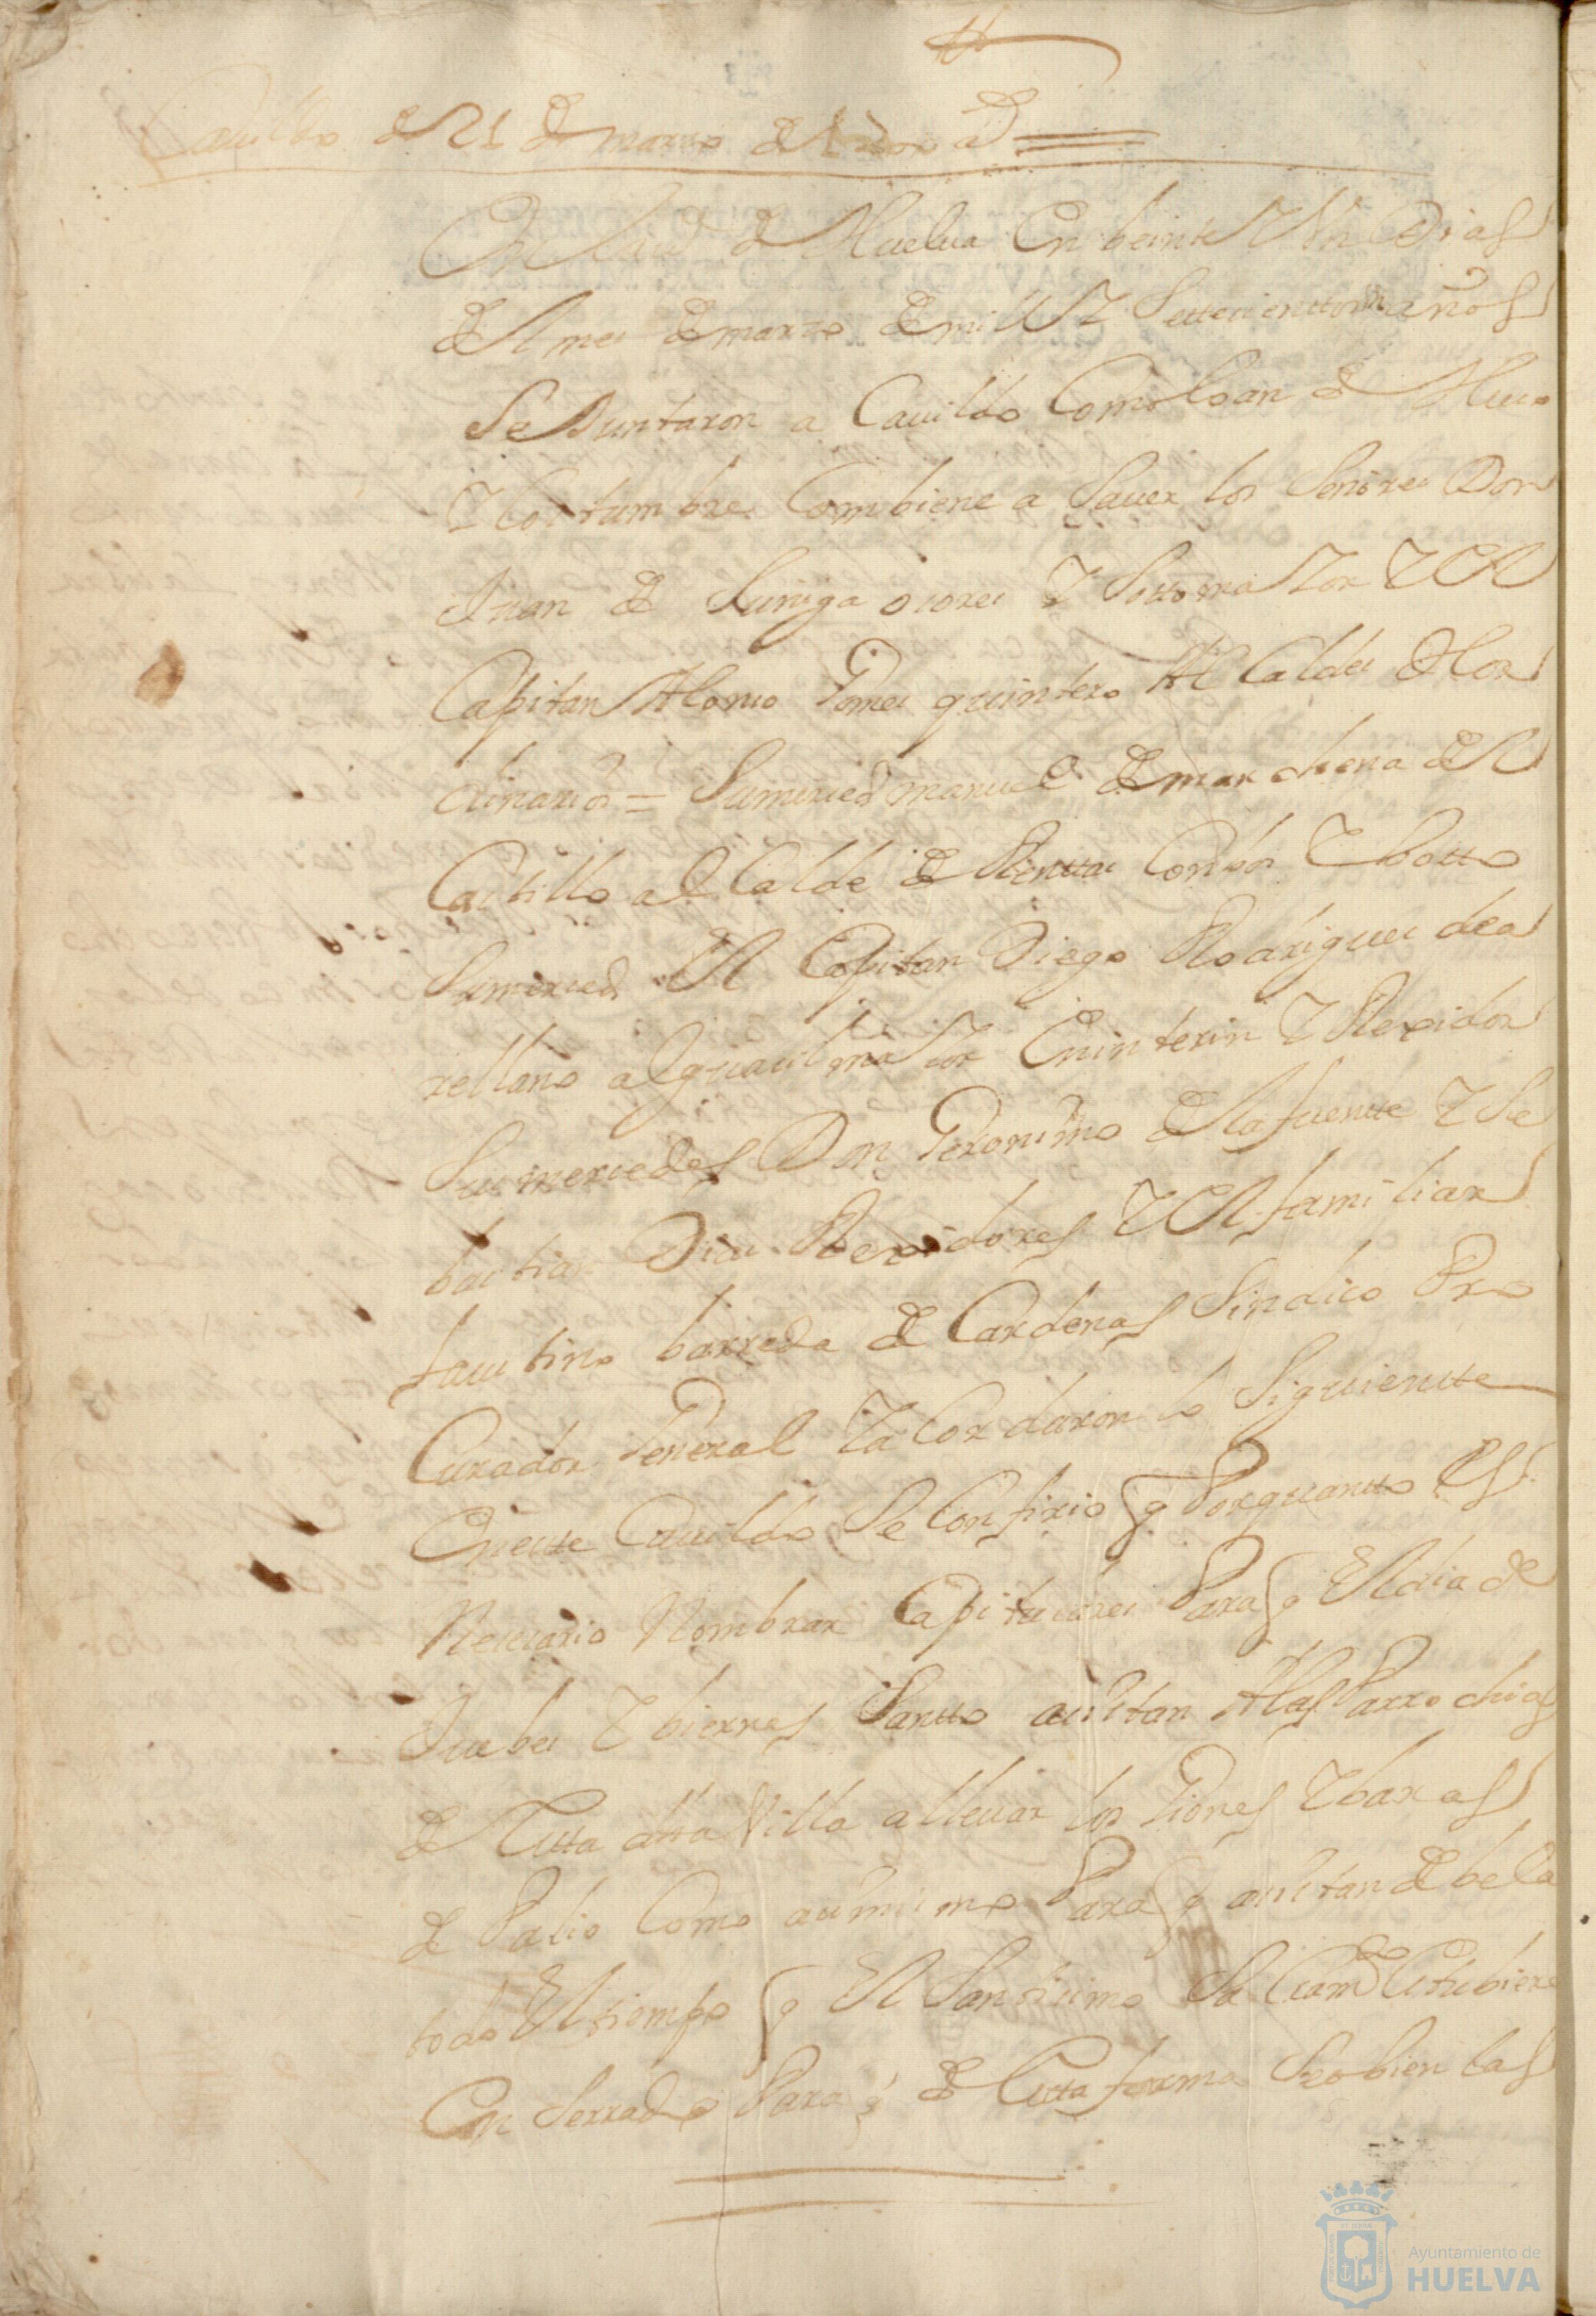 Cauildo de 21 de marzo de 1700 a̅s̅
En la uilla de Huelua En beinte Y Un Dias
del mes de marzo de mill Y Settecienttos años
Se Juntaron a Cauildo Como lo an de Huso
Y Costumbre Combiene a Sauer los Señores Don
Juan de Suniga osores Y Sottomaior Y El
Capitan Alonso Gomes quintero Al Caldes Hor
dinarios = Sumersed manuel de marchena del
Castillo al Calde de Renttas Con bos Y botto
Sumersed El Capitan Diego Rodrigues de a
rellano alguasil maior En interin Y Rexidor
Sus mersedes Don Geronimo de la fuentte Y Se
bastian Dias Rexidores Y El familiar
faustino barreda de Cardenas Sindico Pro
Curador General Y a Cordaron lo Siguientte
En estte Cauildo Se Confirio q Por quantto Es
Nesesario Nombrar Capitulares Para q El dia de
Juebes Y biernes Santto asistan A las Parrochias
de Estta dha Villa a lleuar los Giones Y baras
de Palio Como asimismo Para q asistan de bela
todo El tiempo q El Santisimo Sacramto Estubiere
En Serrado Para q de Estta forma Se obien las
Ayuntamiento de
HUELVA